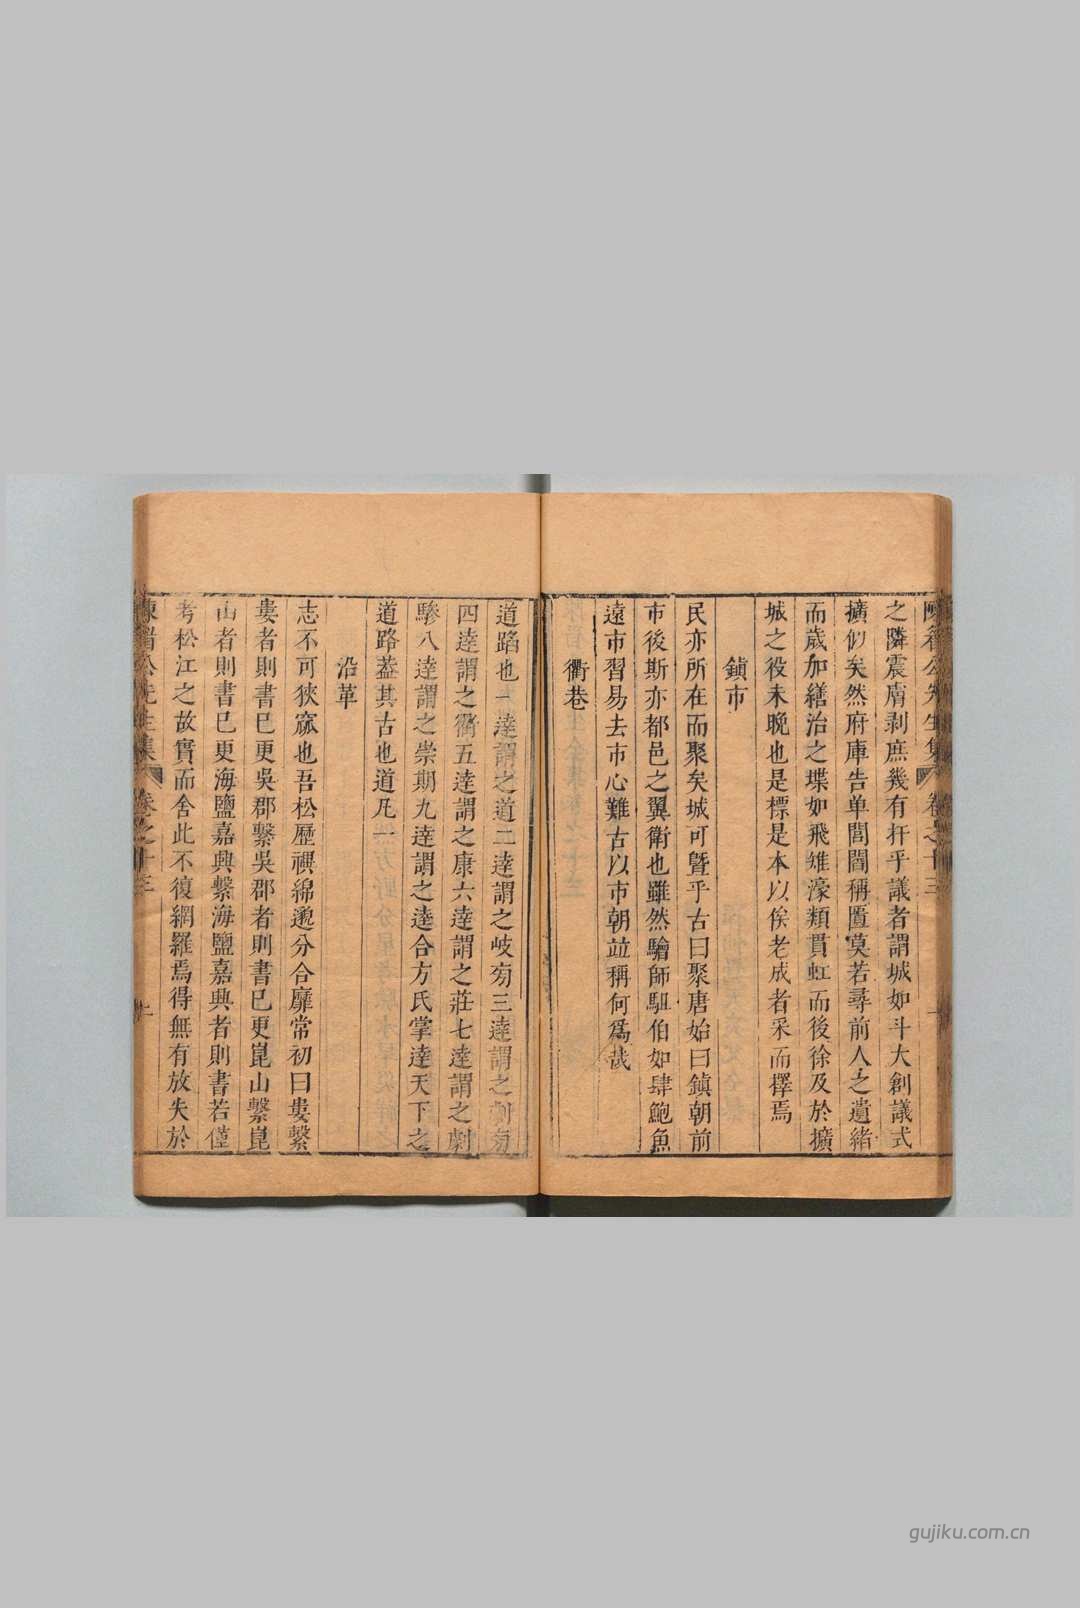 陳眉公先生集 卷之十三
之隣震膚剥庶幾有扞乎議者謂城如斗大創議式
擴似矣然府庫告单閭閻稱匱莫若尋前人之遺緒
而歲加繕治之堞如飛雉濠類貫虹而後徐及於擴
城之役未晚也是標是本以俟老成者采而擇焉
鎮市
民亦所在而聚矣城可曁乎古曰聚唐始曰鎮朝前
市後斯亦都邑之翼衛也雖然驗師駔伯如肆鮑魚
遠市習易去市心難古以市朝竝稱何爲哉
衢巷
道蹈也一逹謂之道二逹謂之岐㫄三逹謂之劇㫄
四逹謂之衢五逹謂之康六逹謂之莊七逹謂之劇
驂八逹謂之崇期九逹謂之逵合方氏掌逹天下之
道路葢其古也道凡一
沿革
志不可狹窳也吾松歷禩綿邈分合靡常初曰婁繫
婁者則書巳更吳郡繫吳郡者則書巳更崑山繫崑
山者則書巳更海鹽嘉興繫海鹽嘉興者則書若僅
考松江之故實而舍此不復網羅焉得無有放失於
陳眉公先生集 卷之十三
gujiku.com.cn